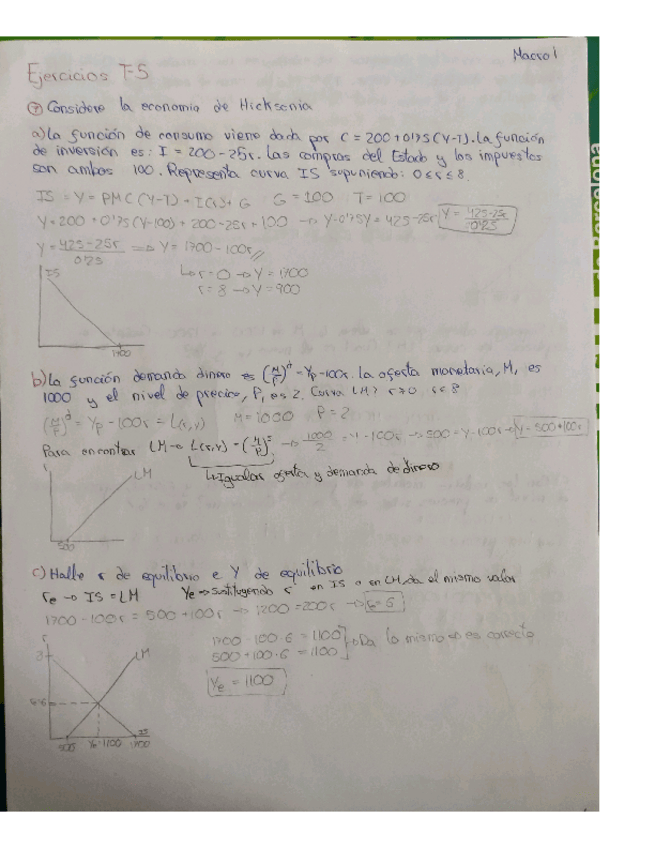 Macro 1
Ejercicios T-5
⑦ Considere la economía de Hicksonia
a) La función de consumo viene dada por C = 200 + 0'75 (Y-T). La función
de inversión es: I = 200 - 25r. Las compras del Estado y los impuestos
son ambos 100. Representa curva IS suponiendo: 0 ≤ r ≤ 8.
IS = Y = PMC (Y-T) + I(r) + G G = 100 T = 100
Y = 200 + 0'75 (Y-100) + 200 - 25r + 100 → Y - 0'75Y = 425 - 25r Y = 425-25r / 0'25
Y = 425 - 25r / 0'25 ⇒ Y = 1700 - 100r
↳ r = 0 → Y = 1700
r = 8 → Y = 900
IS
1700
b) La función demanda dinero es (M/P)^d = Yp - 100r. La oferta monetaria, M, es
1000 y el nivel de precios, P, es 2. Curva LM? r≥0 r≤8
(M/P)^d = Yp - 100r = L(r,Y) M = 1000 P = 2
Para encontrar LM → L(r,Y) = (M/P)^s → 1000/2 = Y - 100r → 500 = Y - 100r → Y = 500 + 100r
↳ Igualar oferta y demanda de dinero
r
LM
500
c) Halle r de equilibrio e Y de equilibrio
re → IS = LM Ye → Sustituyendo r en IS o en LM da el mismo valor
1700 - 100r = 500 + 100r → 1200 = 200r → r = 6
1700 - 100·6 = 1100
500 + 100·6 = 1100
Da lo mismo → es correcto
Ye = 1100
r
8
LM
IS
500 Ye=1100 1700
de Barcelona